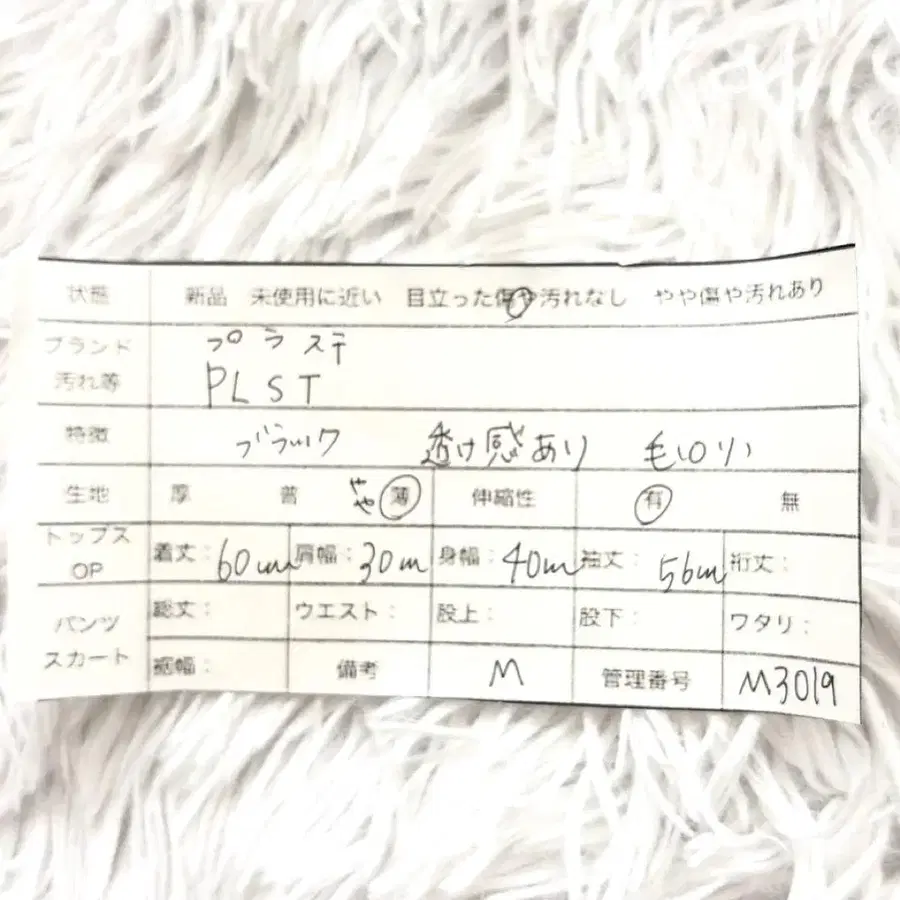 状態 新品 未使用に近い 目立った傷や汚れなし やや傷や汚れあり
ブランド 汚れ等 プラステ
PLST
特徴 ブラック 透け感あり 毛田り
生地 厚 普 やや 薄 伸縮性 有 無
トップス OP 着丈: 60cm 肩幅: 30cm 身幅: 40cm 袖丈: 56cm 裄丈:
パンツ スカート 総丈: ウエスト: 股上: 股下: ワタリ:
裾幅: 備考 M 管理番号 M3019